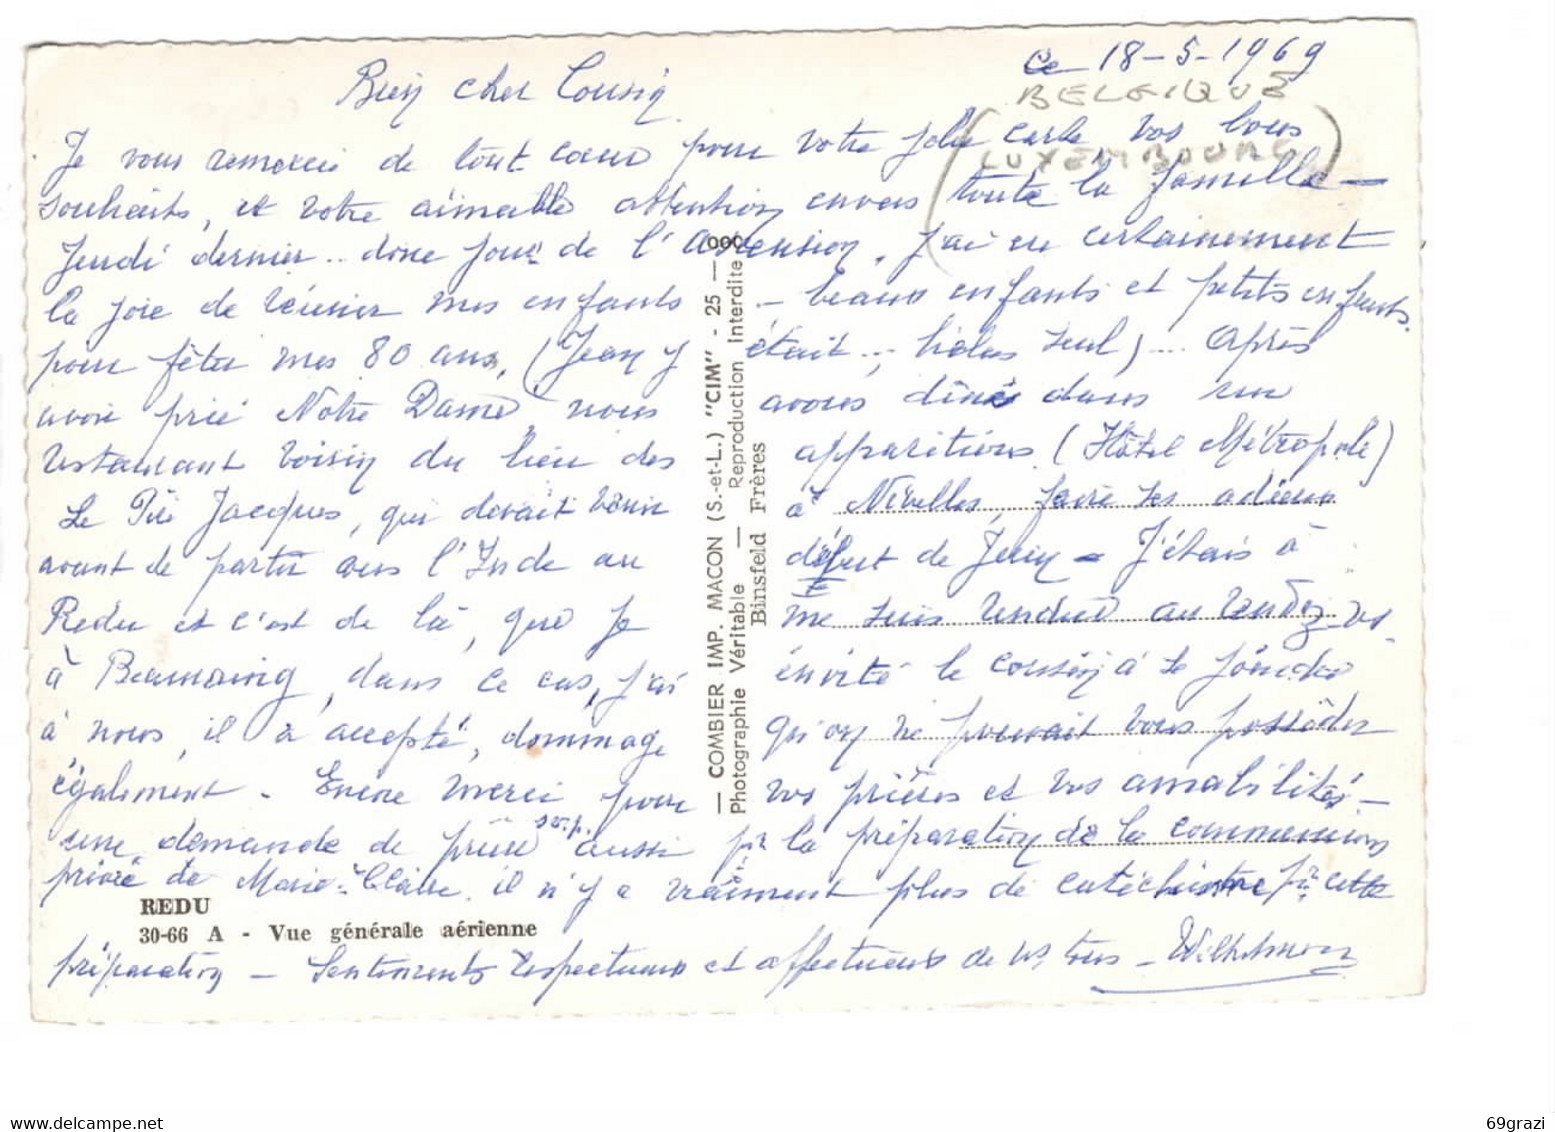 ce 18-5-1969
BELGIQUE
(LUXEMBOURG)
Bien cher Cousin
Je vous remercie de tout coeur pour votre jolie carte, vos bons
souhaits, et votre aimable attention envers toute la famille -
Jeudi dernier .. donc jour de l'Ascension, j'ai eu certainement
la joie de réunir mes enfants - beaux enfants et petits enfants.
pour fêter mes 80 ans, (Jean y était .., hélas seul) ... Après
avoir prié Notre Dame, nous avons dîné dans un
restaurant voisin du lieu des apparitions (Hôtel Métropole)
Le Père Jacques, qui devait venir à Nivelles, faire ses adieux
avant de partir vers l'Inde au début de Juin - J'étais à
Redu et c'est de là, que je me suis rendue au rendez-vs
à Beauraing, dans ce cas, j'ai invité le cousin à se joindre
à nous, il a accepté, dommage qu'on ne pouvait vous posséder
également - Encore merci pour vos prières et vos amabilités -
une demande de prière s.v.p. aussi pr la préparation de la communion
privée de Marie-Claire il n'y a vraiment plus de catéchisme pr cette
préparation - Sentiments respectueux et affectueux de ns tous - Wilhelmon
REDU
30-66 A - Vue générale aérienne
— COMBIER IMP. MACON (S.-et-L.) "CIM" - 25 —
Photographie Véritable — Reproduction Interdite
Binsfeld Frères
69grazi